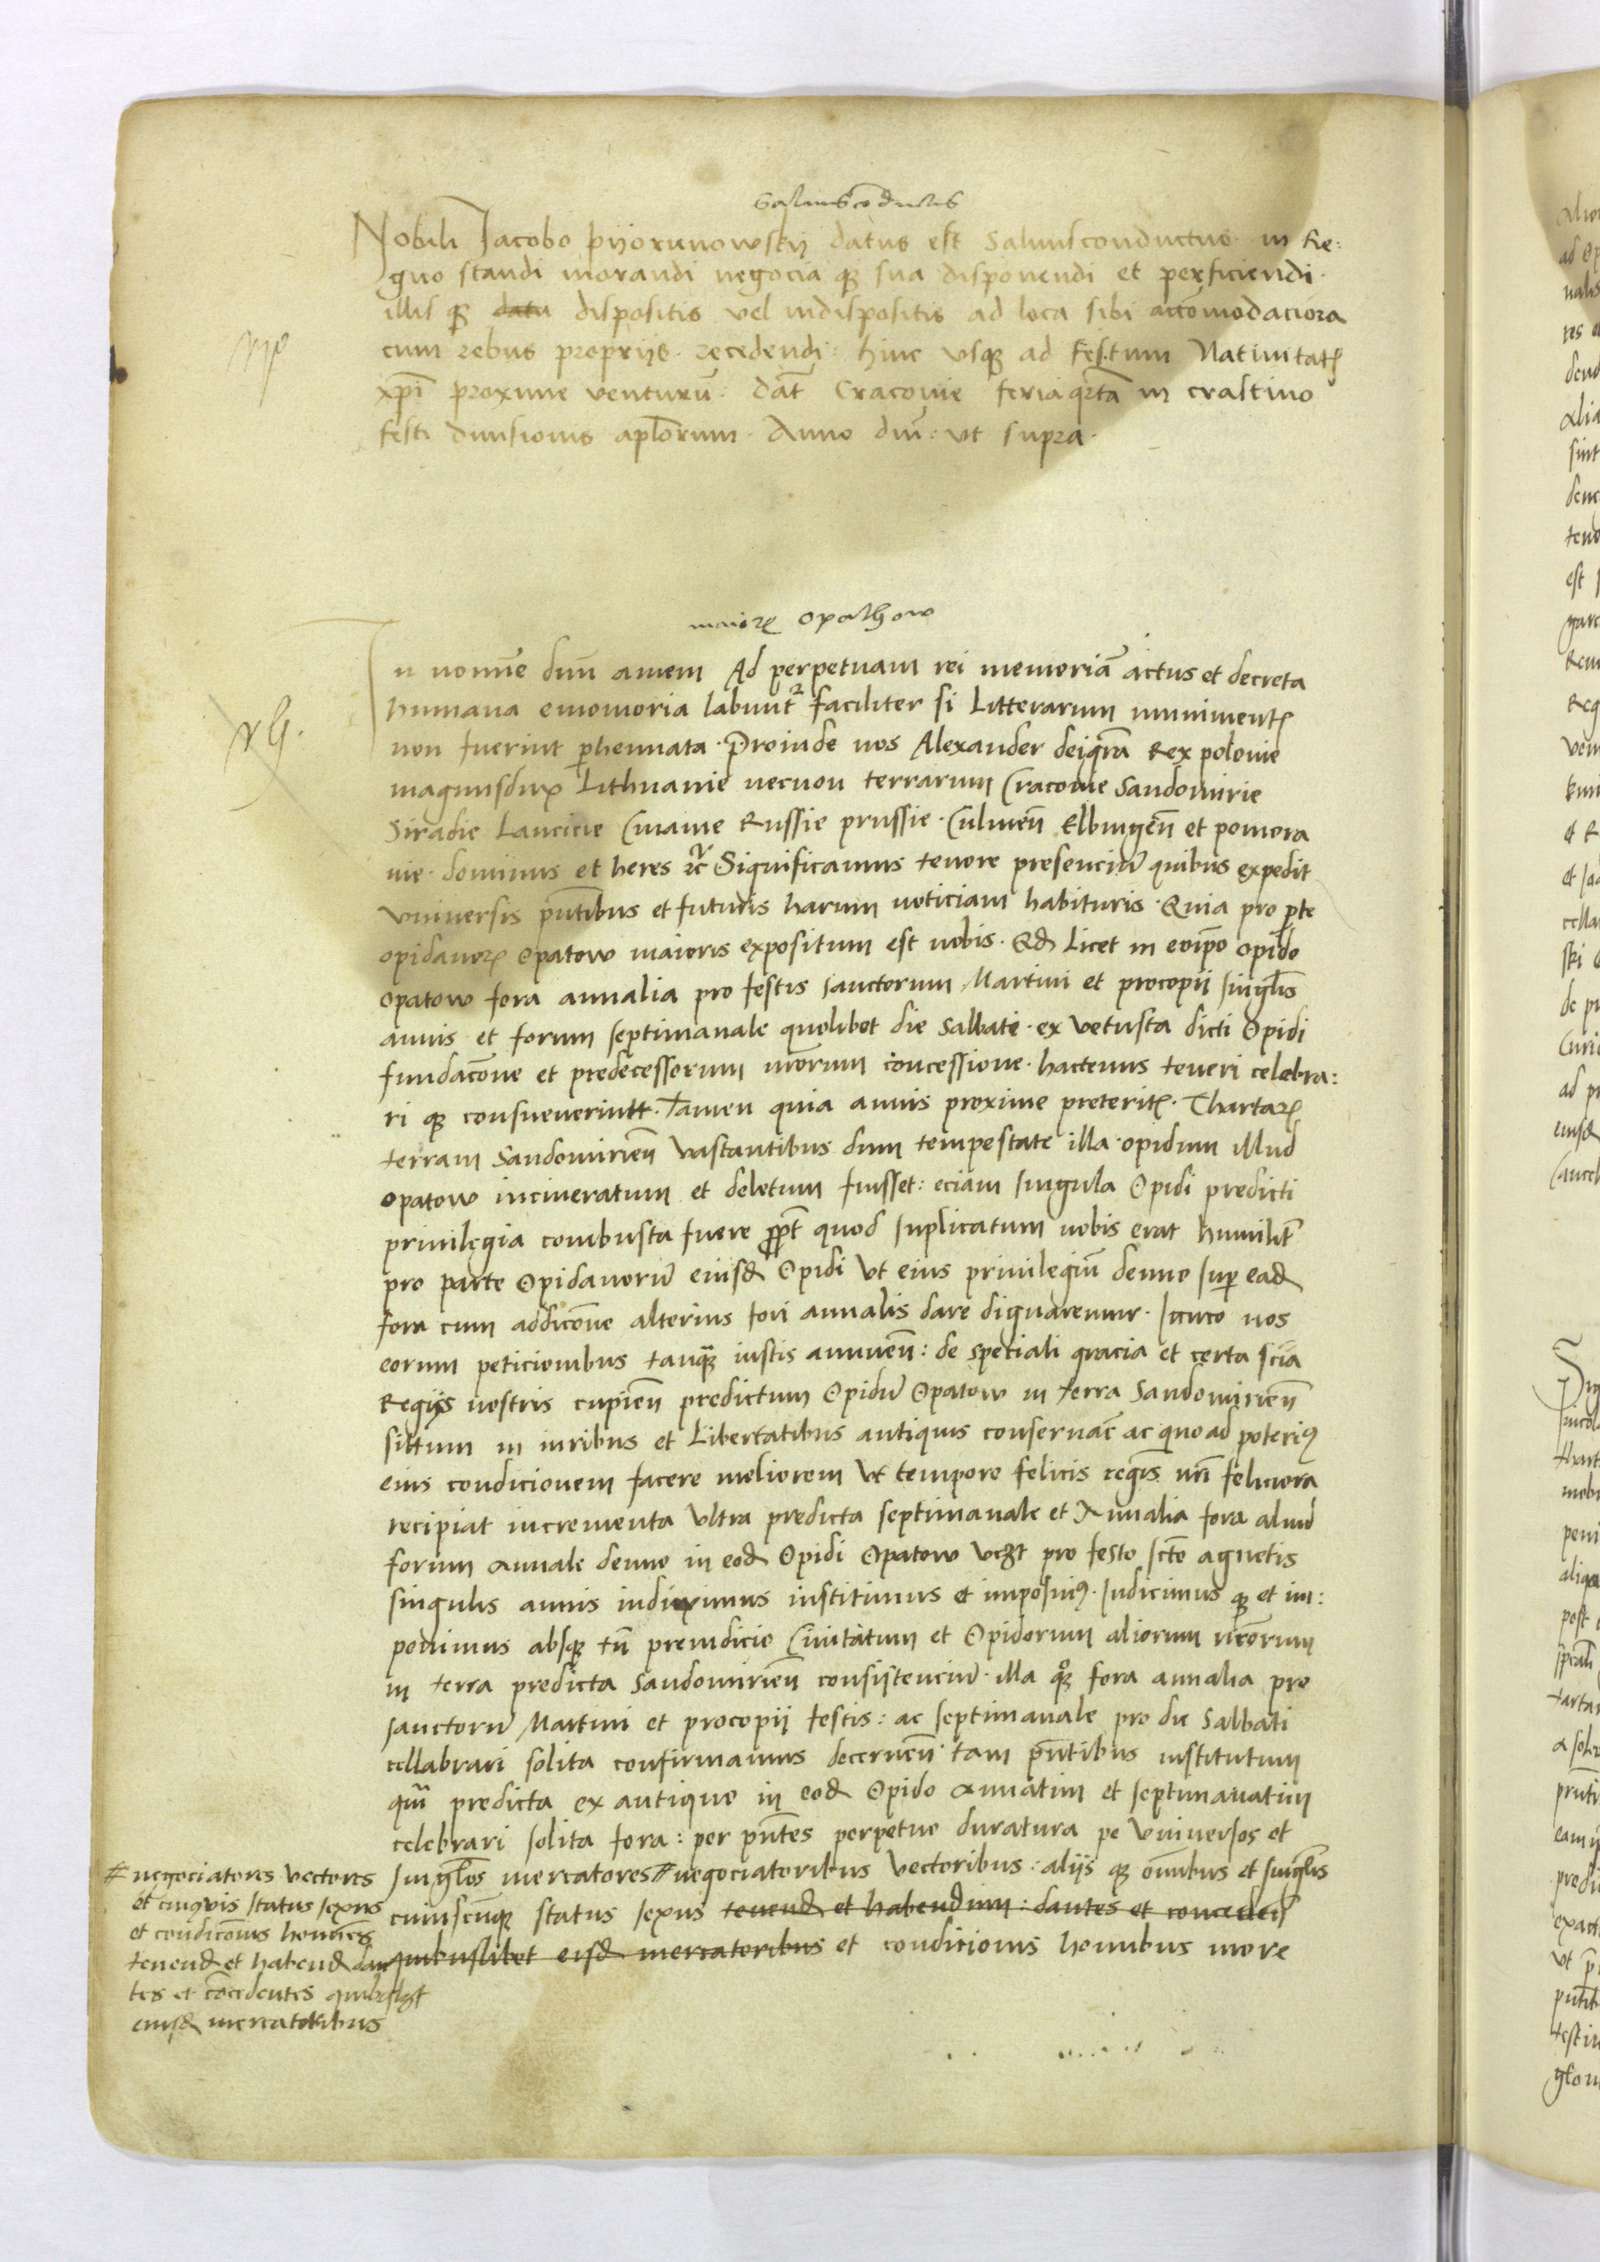 Salvuscōductus
Nobili Jacobo pijorunowskij datus est Salvusconductus in Re:
gno standi morandi negocia qꝫ sua disponendi et perficiendi.
illis qꝫ datu dispositis vel indispositis ad loca sibi accomodaciora
cum rebus proprijs recedendi: hinc usqꝫ ad festum Nativitatꝭ
xpi proxime venturū. Dat̄ Cracovie feria qrta in crastino
festi divisionis aplorum. Anno dni: ut supra.
maiorꝫ Opathow
In nomīe dnī amen Ad perpetuam rei memoriā actus et decreta
humana ememoria labuntr faciliter si Litterarum munimentꝭ
non fuerint phennata. Proinde nos Alexander deigrā Rex polonie
magnusdux Lithuanie necnon terrarum Cracovie Sandomirie
Siradie Lancicie Cuiavie Russie prussie. Culmeñ Elbingeñ et pomora
nie dominus et heres ⁊c̄ Significamus tenore presenciū quibus expedit
universis pntibus et futuris harum noticiam habituris. Quia pro pte
opidanorꝫ Opatow maioris expositum est nobis. Qd licet in eoipō opido
opatow fora annalia pro festis sanctorum Martini et procopii singlis
annis et forum septimanale quolibet die Sabbati. ex vetusta dicti Opidi
fundacōne et predecessorum nrorum concessione hactenus teneri celebra:
ri qꝫ consueverintt. Tamen quia annis proxime preteritꝭ. Thartarꝭ
terram Sandomirieñ vastantibus dum tempestate illa opidum illud
opatow incineratum et deletum fuisset: eciam singula Opidi predicti
privilegia combusta fuere ppt quod suplicatum nobis erat humilitr
pro parte Opidanorū eiusd Opidi ut eius privilegiū denuo sup ead
fora cum addicōne alterius fori annalis dare dignaremur. Itaco nos
eorum peticionibus tanqꝫ iustis annueñ: de speciali gracia et certa scīa
Regijs nostris cupieñ predictum Opidū Opatow in terra Sandomirieñ
sittum in iuribus et libertatibus antiquis conservar̄ ac quoad poterimꝰ
eius condicionem facere meliorem ut tempore felicis regīs nrī feliciora
recipiat incrementa ultra predicta septimanale et Annalia fora aliud
forum annale denuo in eod Opidi Opatow vczt pro festo scte agnetis
singulis annis indiximus instituimus et imposuimꝰ. Indicimus qꝫ et im:
ponimus absqꝫ tn preiudicio Civitatum et Opidorum aliorum nrorum
in terra predicta Sandomirieñ consistenciū. illa qꝫ fora annalia pro
sanctorū Martini et procopii festis: ac septimanale pro die Sabbati
cellabrari solita confirmamus decerneñ tam pntibus institutum
qm predicta ex antiquo in eod Opido annatim et septimanatim
celebrari solita fora: per pntes perpetuo duratura pe universos et
singlos mercatores # negociatoribus vectoribus: aliis qꝫ omibus et singlis
cuiuscunqꝫ status sexus tenend et habendum: dantes et concedens
quibuslibet eisd mercatoribus et condicionis hominibus more
# negociatores vectores
et cuiqvis status sexus
et condicōnis homines
tenend et habend dan
tes et cōcedentes quibuslzt
eiusd mercatoribus